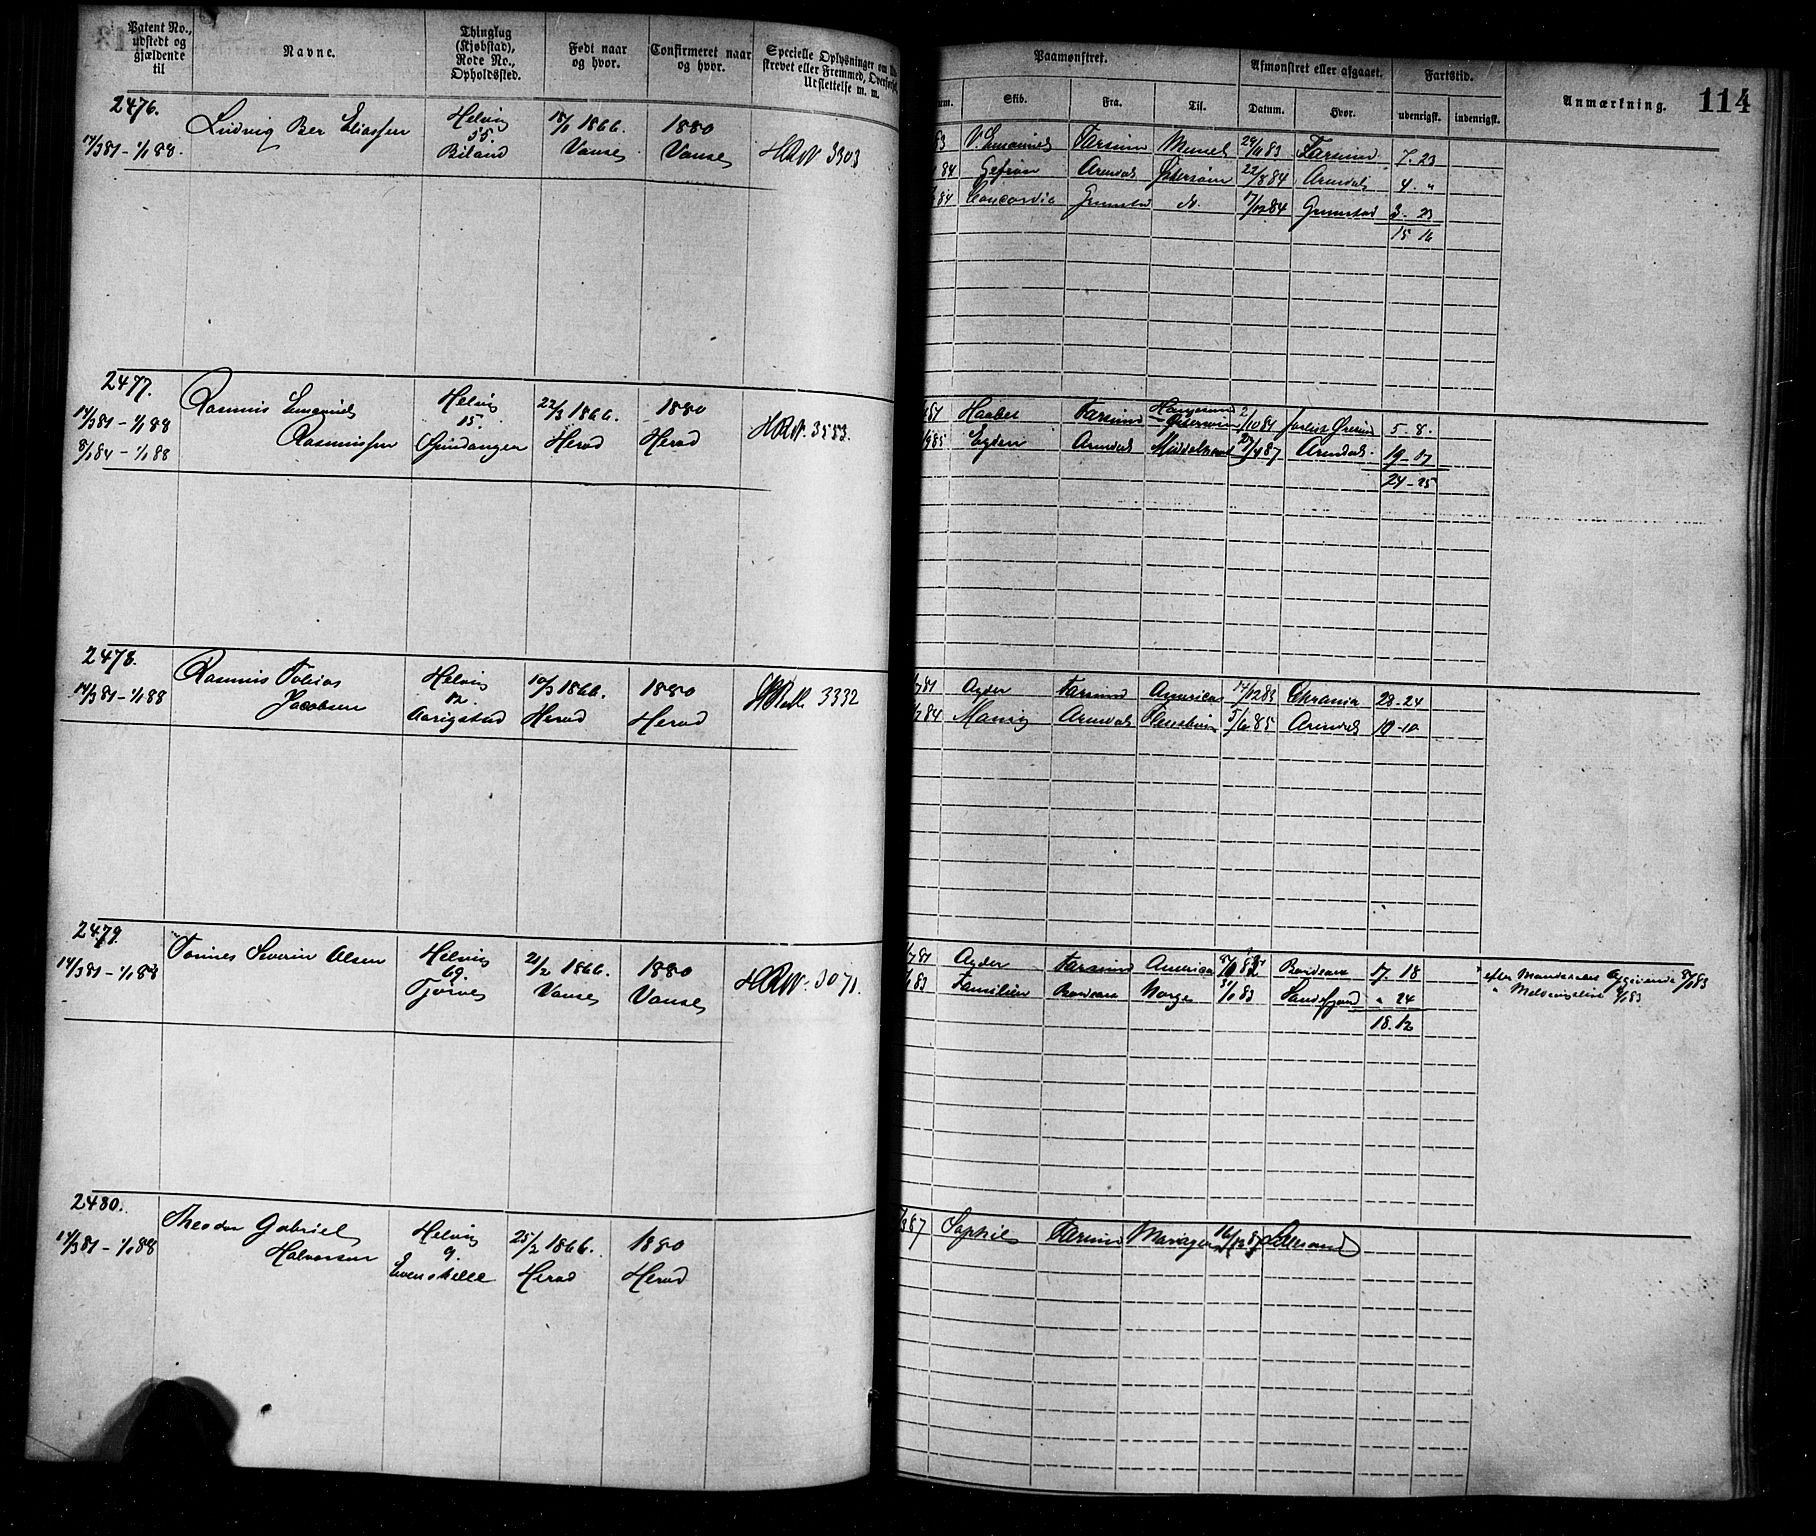 Patent No., udstedt og gjældende til
Navne.
Thinglag (Kjøbstad), Rode No., Opholdssted.
Født naar og hvor.
Confirmeret naar og hvor.
Specielle Oplysninger om
skrevet eller Fremmed,
Udslettelse m. m.
Paamønstret.
Skib.
Fra.
Til.
Afmønstret eller afgaaet.
Datum.
Hvor.
Fartstid.
udenrigsk.
indenrigsk.
Anmærkning.
114
2476.
14/3 81 - 1/1 88.
Ludvig Ber Eliassen
Helvig
55.
Biland
18/1 1866.
Vanse
1880
Vanse
3303
83 V. Emanuel Farsund Memel 29/11 83 Farsund 7. 23
84 Gefion Arendal Østersøen 22/8 84 Arendal 4. "
84 Concordia Grimstad do. 17/12 84 Grimstad 3 - 23
15 16
2477.
14/3 81 - 1/1 88
8/1 84 - 1/1 88
Rasmus Emanuel
Rasmussen
Helvig
15.
22/3 1866.
Herad
1880
Herad
3553.
81 Haabet Farsund Østersøen 2/10 81 5 - 8.
85 Egden Arendal Middelhavet 27/4 87 Arendal 19 - 17
24 - 25
2478.
14/3 81 - 1/1 88
Rasmus Tobias
Jacobsen
Helvig
12.
Aarigstad
10/3 1866.
Herad
1880
Herad
3332
81 Agder Farsund America 14/12 83 Chrania 28 - 24
84 Arendal 5/6 85 Arendal 10 - 10
2479.
14/3 81 - 1/1 88
Tønnes Severin Olsen
Helvig
69.
Tjørve
21/2 1866.
Vanse
1880
Vanse
3071.
81 Agder Farsund America Bordeaux 17. 18
83 Familien Bordeaux Norge 31/1 83 Sandefjord " 24
18. 12
efter Mandskabets Opgivende
83
2480.
14/3 81 - 1/1 88
Theodor Gabriel
Halvorsen
Helvig
9.
Evenskelle
25/2 1866.
Herad
1880
Herad
87 Sophie Farsund 16/12 87 Lillesand